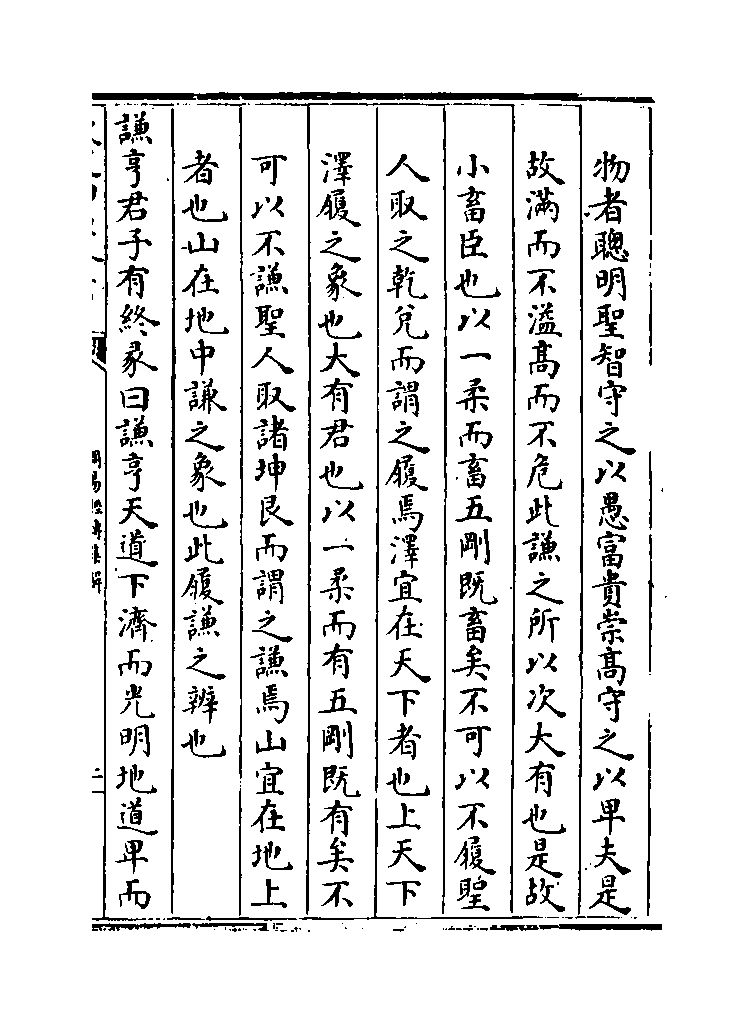 物者聰明聖智守之以愚富貴崇髙守之以卑夫是
故滿而不溢髙而不危此謙之所以次大有也是故
小畜臣也以一柔而畜五剛既畜矣不可以不履聖
人取之乾兌而謂之履焉澤宜在天下者也上天下
澤履之象也大有君也以一柔而有五剛既有矣不
可以不謙聖人取諸坤艮而謂之謙焉山宜在地上
者也山在地中謙之象也此履謙之辨也
謙亨君子有終彖曰謙亨天道下濟而光明地道卑而
周易經傳集解